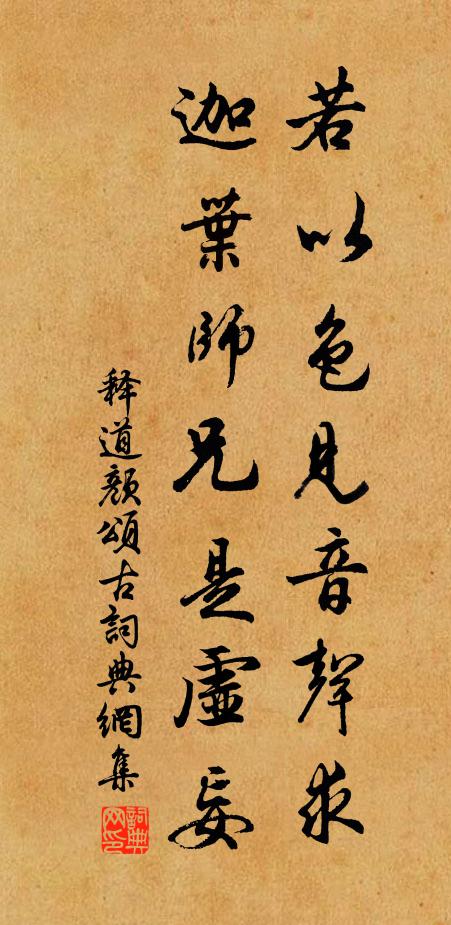 若以色見音聲求
迦葉師兄是虛妄
释道颜頌古詞典網集
詞典
网印